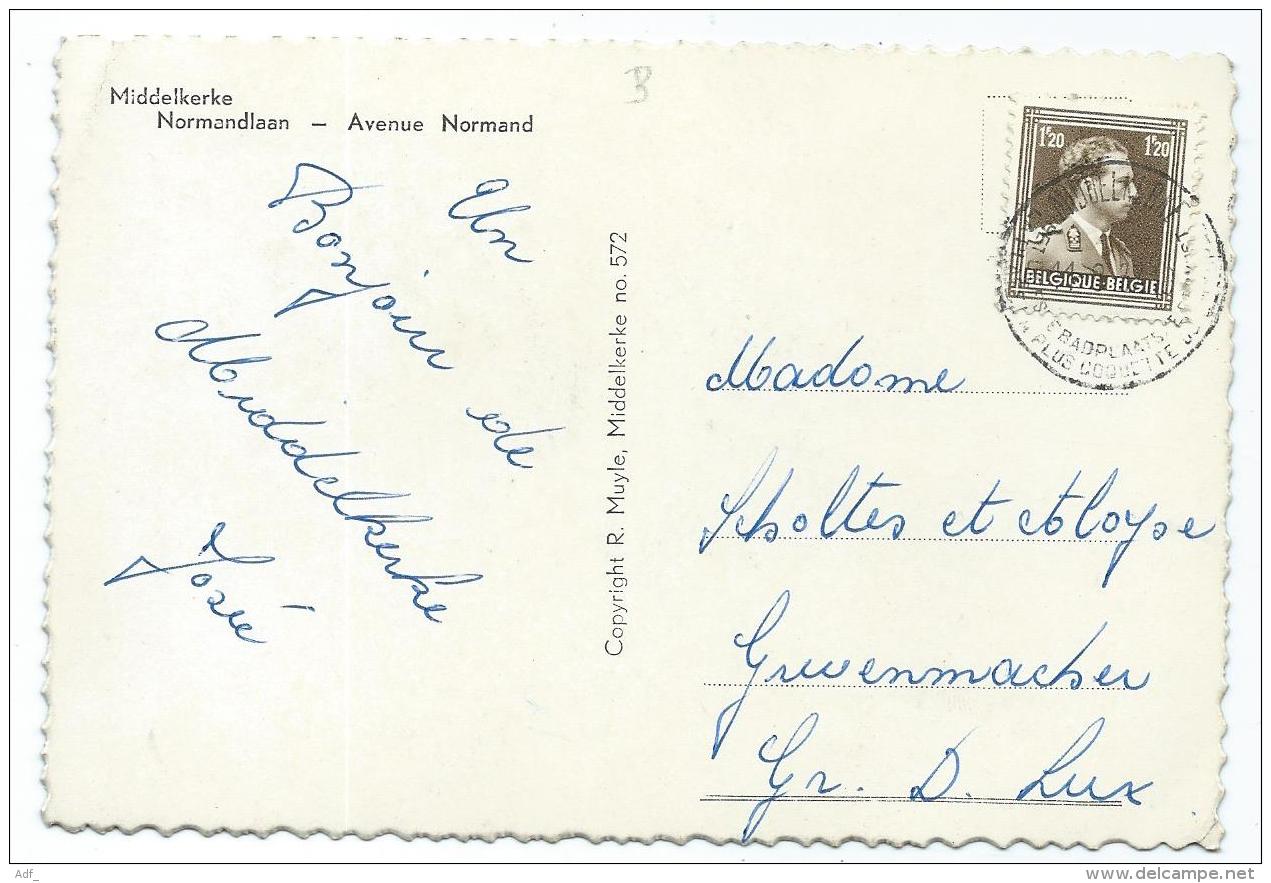 Middelkerke
Normandlaan – Avenue Normand
B
Un
Bonjour de
Middelkerke
Josée
Copyright R. Muyle, Middelkerke no. 572
1F20 1F20
BELGIQUE-BELGIE
BADPLAATS
PLUS COQUETTE
Madame
Scholtes et
Grevenmacher
Gr. D. Lux
Adf_
www.delcampe.net